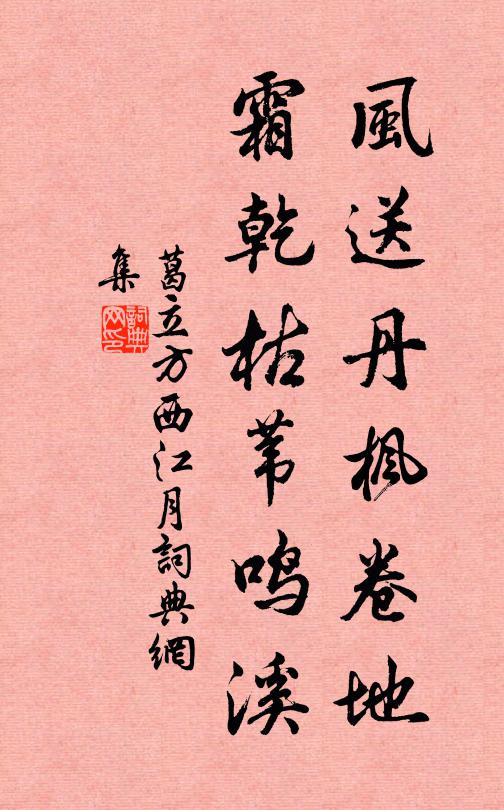 風送丹楓卷地
霜乾枯苇鸣溪
葛立方西江月詞典網
集
詞典
网印